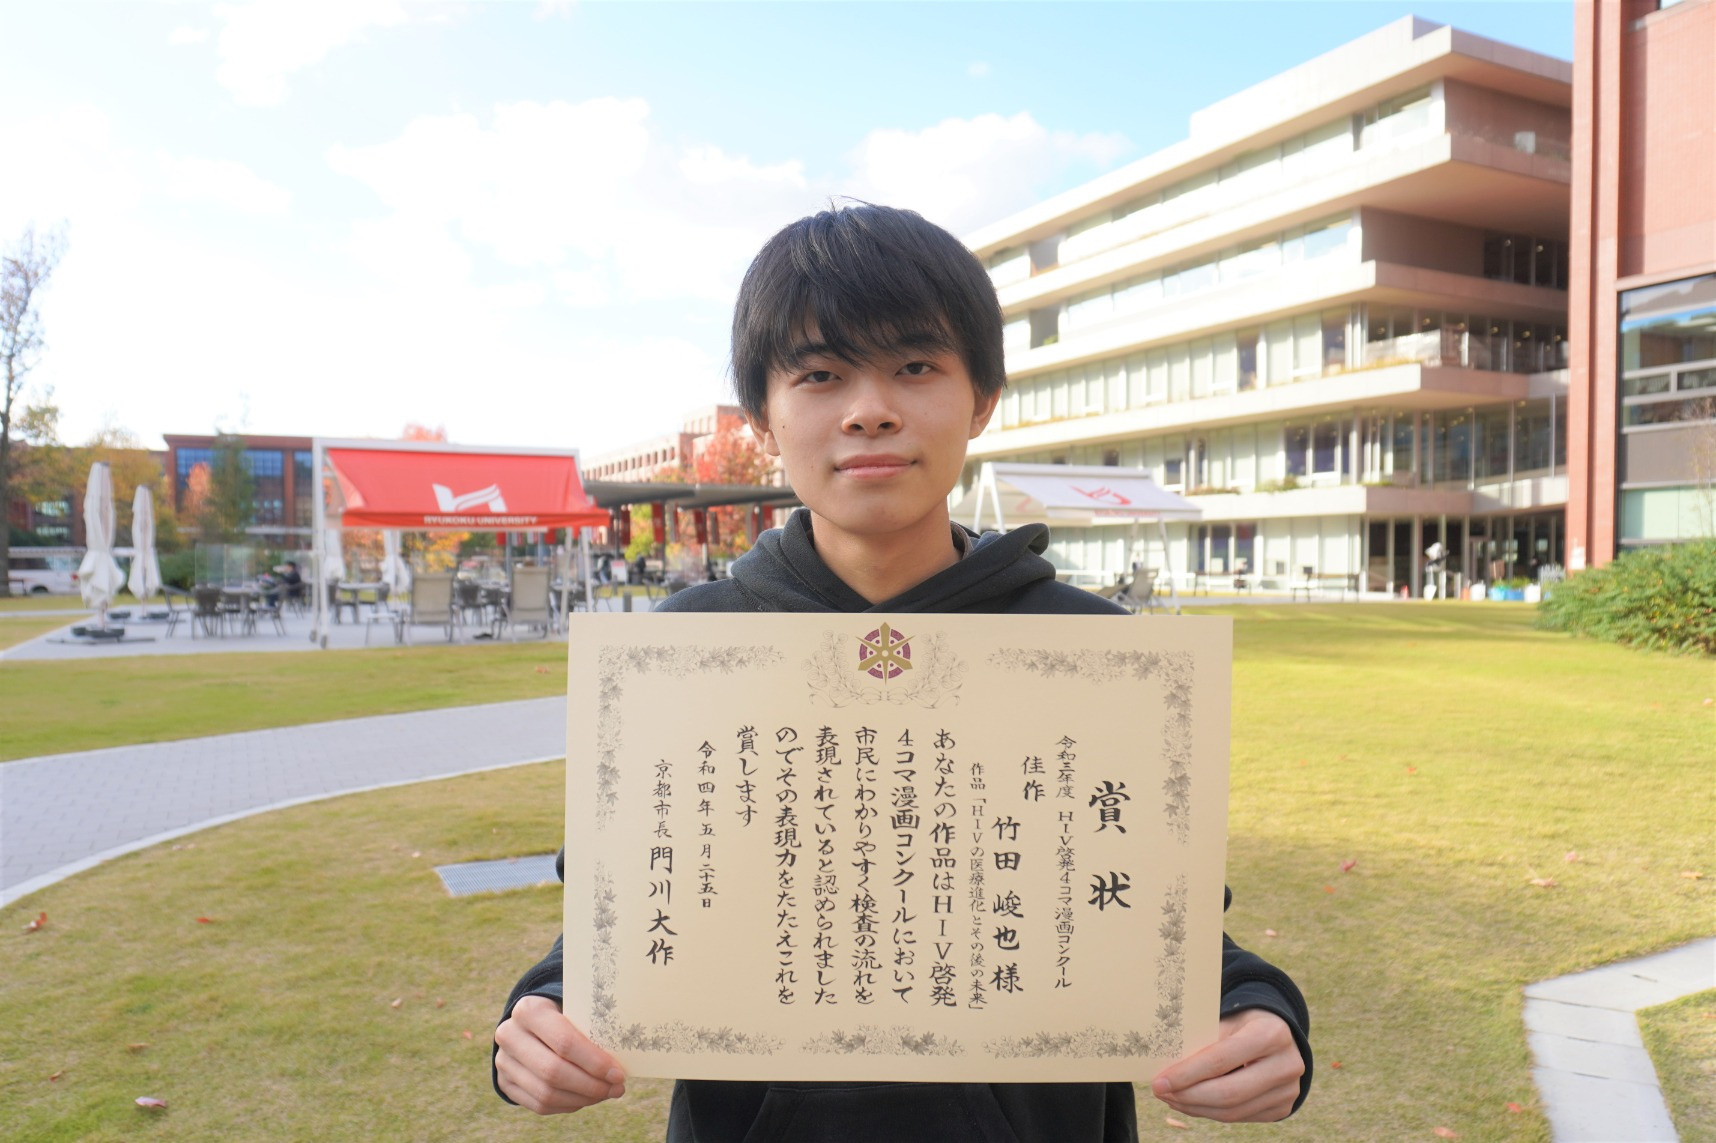 RYUKOKU UNIVERSITY
賞状
令和三年度 HIV啓発4コマ漫画コンクール
佳作
竹田 峻也 様
作品「HIVの医療進化とその後の未来」
あなたの作品はHIV啓発
4コマ漫画コンクールにおいて
市民にわかりやすく検査の流れを
表現されていると認められました
のでその表現力をたたえこれを
賞します
令和四年五月二十五日
京都市長 門川大作